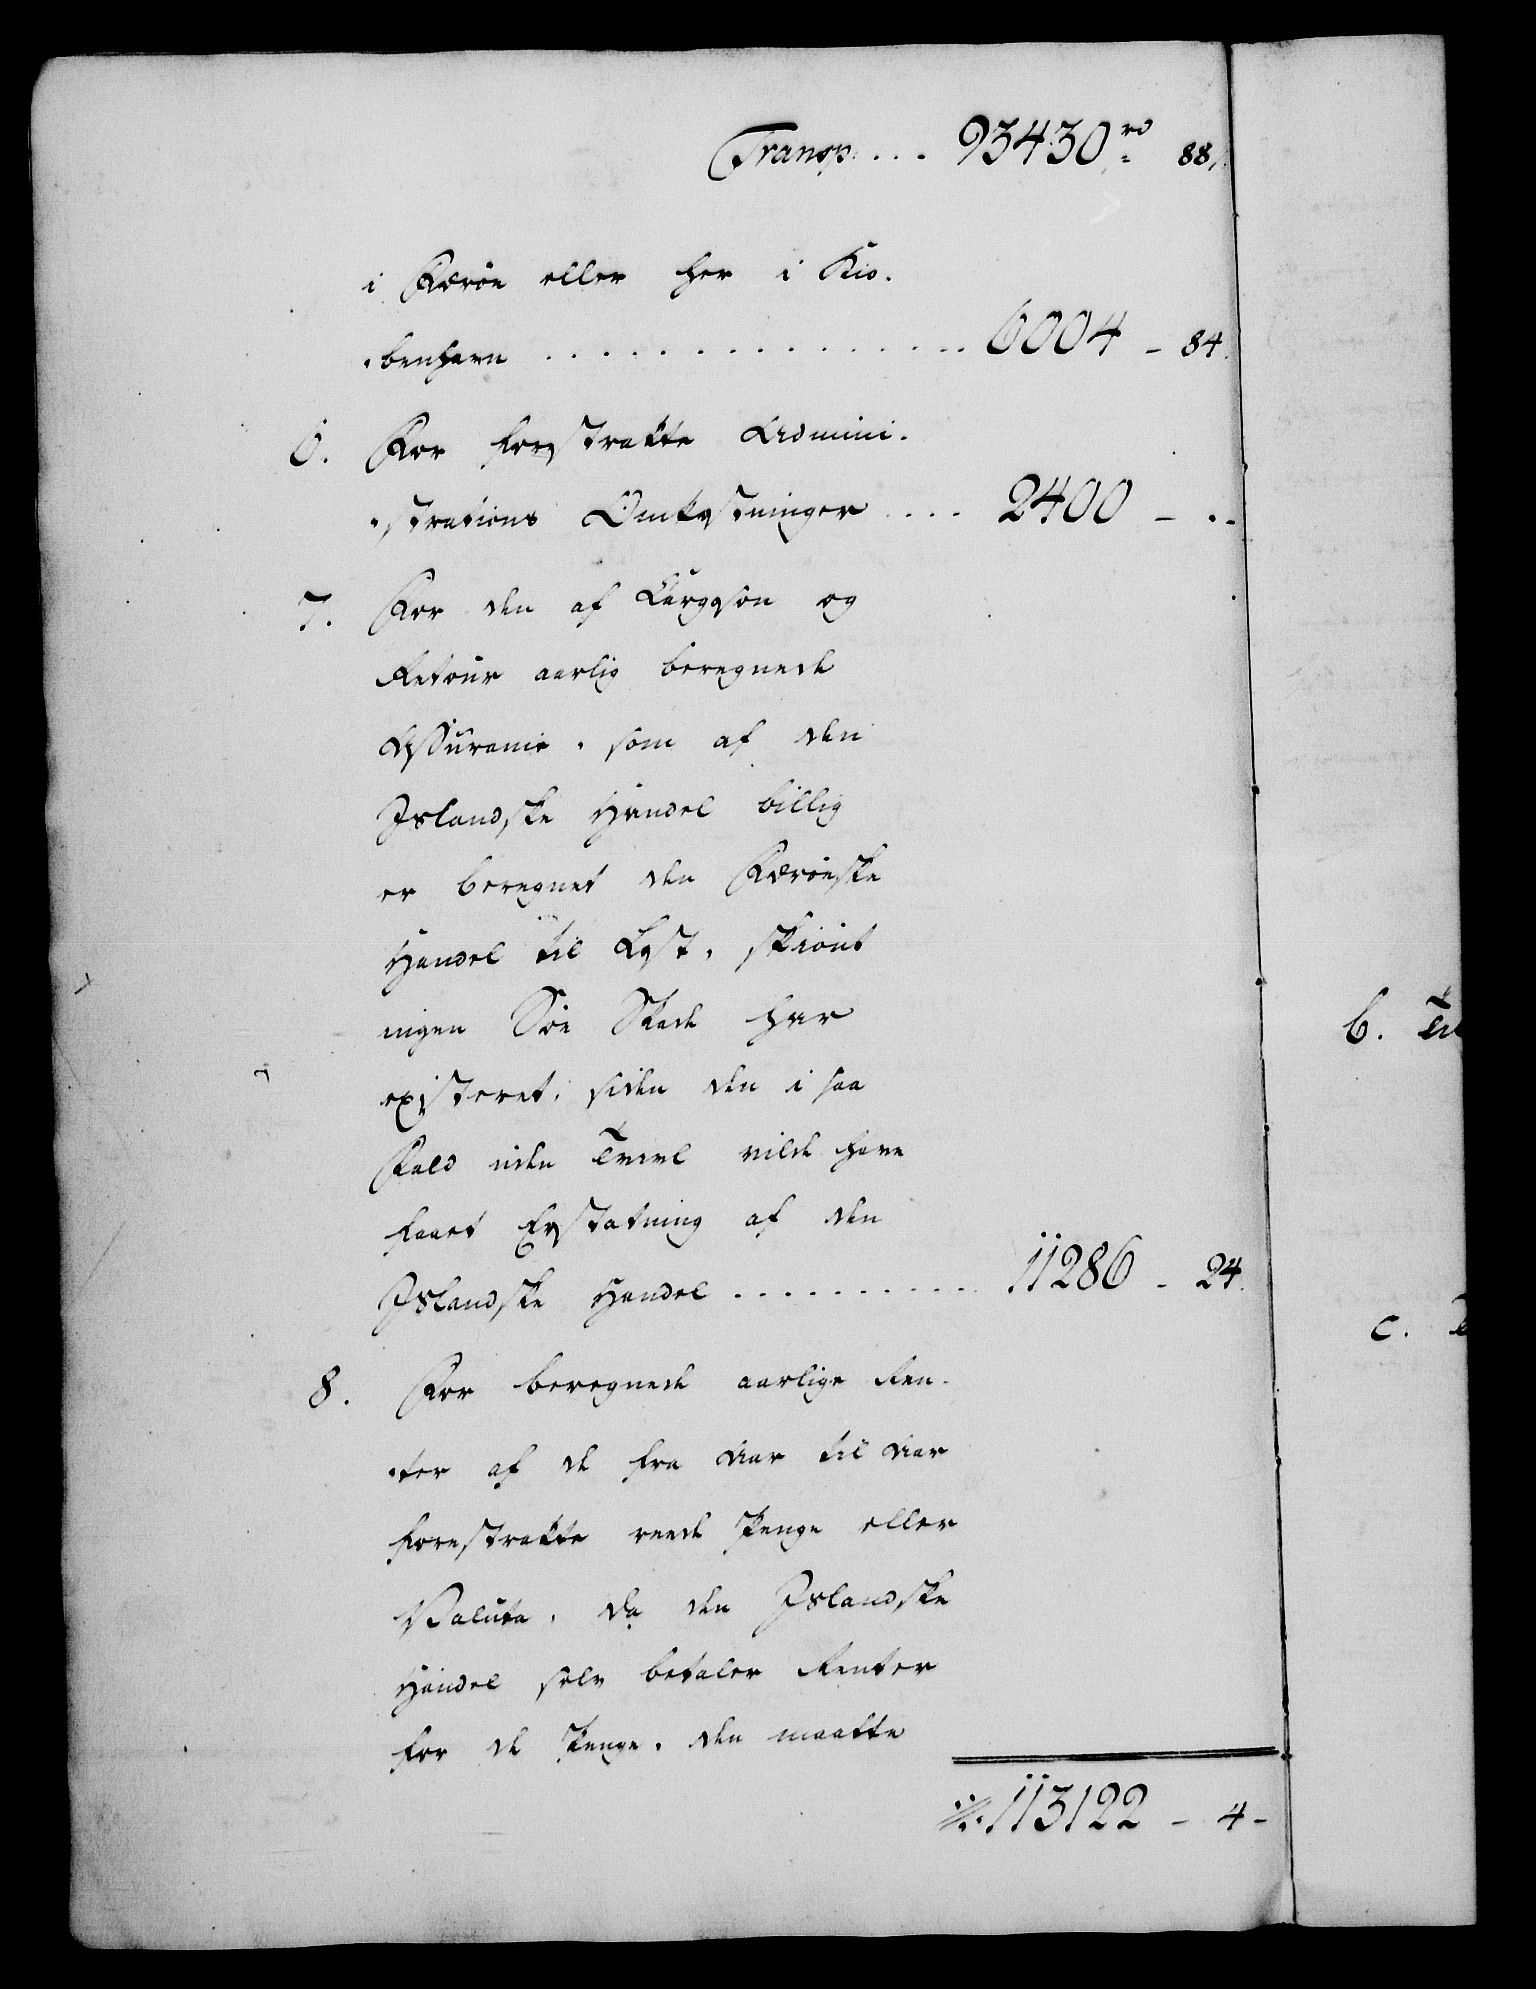 Transp. . . . 93430 rd 88,
i Færöe eller her i Kiö-
-benhavn . . . . . . . . . . . . . . . 6004 - 84.
6. For forstrakte Admini-
-strations Omkostninger . . . . 2400 - . -
7. For den af Cargoson og
Retour aarlig beregnede
Assurance, som af den
Islandske Handel billig
er beregnet den Færöeske
Handel til Last, skiönt
ingen Söe Skade har
existeret, siden den i saa
Fald uden Tvivl vilde have
faaet Erstatning af den
Islandske Handel . . . . . . . . . . 11286 - 24.
8. For beregnede aarlige Ren-
-ter af de fra Aar til Aar
forestrakte reede Penge eller
Valuta, da den Islandske
Handel selv betaler Renter
for de Penge, den maatte
113122 - 4 -
b. Til
c.